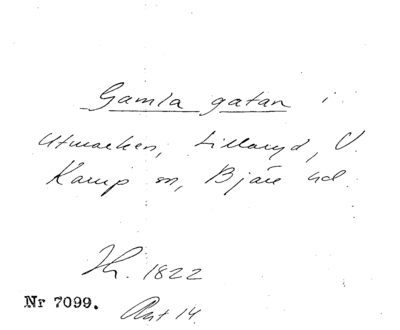 Gamla gatan i
Utmarken, Lillaryd, V.
Karup sn, Bjäre hd.
1822
Nr 7099.
Akt 14.